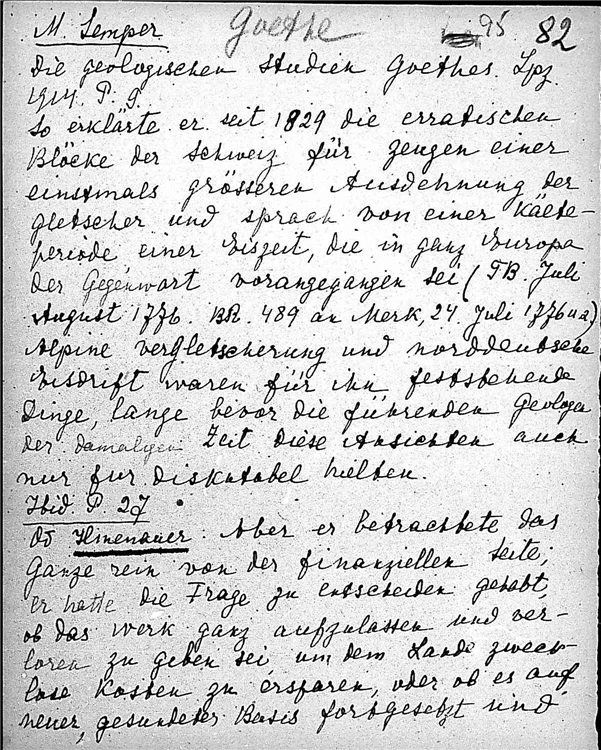 M. Semper Goethe 95 82
Die geologischen Studien Goethes. Lpz.
1914. P. 9.
So erklärte er seit 1829 die erratischen
Blöcke der Schweiz für Zeugen einer
einstmals grösseren Ausdehnung der
Gletscher und sprach von einer Kälte-
periode einer Eiszeit, die in ganz Europa
der Gegenwart vorangegangen sei (TB. Juli
August 1776. BR. 489 an Merk, 24. Juli 1776 u a)
Alpine Vergletscherung und norddeutsche
Eisdrift waren für ihn feststehende
Dinge, lange bevor die führenden Geologen
der damaligen Zeit diese Ansichten auch
nur für diskutabel hielten.
Ibid. P. 27
Ilmenauer. Aber er betrachtete das
Ganze rein von der finanziellen Seite;
er hatte die Frage zu entscheiden gehabt,
ob das Werk ganz aufzulassen und ver-
loren zu geben sei um dem Lande zweck-
lose Kosten zu ersparen, oder ob es auf
neuer, gesundeter Basis fortgesetzt